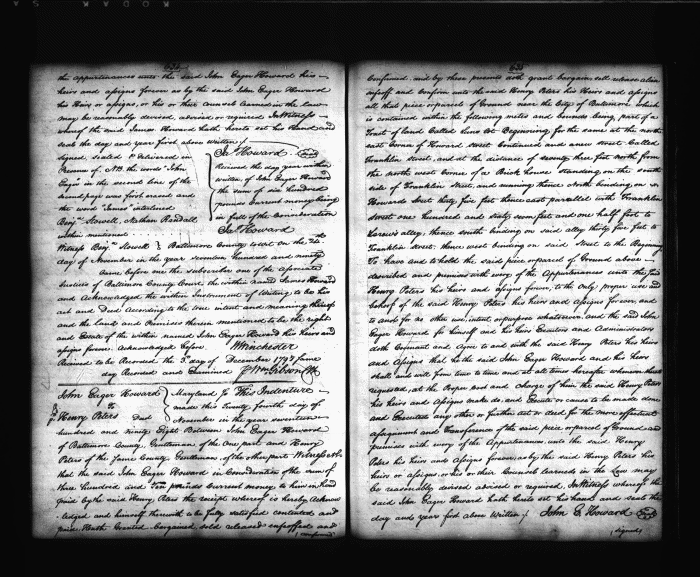 the appurtenances unto the said John Eager Howard his
heirs and assigns forever as by the said John Eager Howard
his Heirs or assigns, or his or their counsel learned in the law
may be reasonably devised, advised or required In Witness
whereof the said James Howard hath hereto set his Hand and
seal the day and year first above written
signed, sealed & Delivered in
Presence of. NB. the words "John
Eager in the second line of the
second page was first erased and
the word "James" interlined
Benjn. Stowell, Nathan Randall
Ja. Howard (seal)
Received the day & year within
written of John Eager Howard
the sum of six hundred
pounds Current money being
in full of the Consideration
within mentioned
Jas. Howard
Witness Benjn. Stowell } Baltimore County to wit on the 24th
day of November in the year seventeen hundred and ninety
Came before me the subscriber one of the Associate
Justices of Baltimore County Court, the within named James Howard
and Acknowledged the within Instrument of Writing to be his
act and Deed According to the true intent and meaning thereof
and the Land and Premises therein mentioned to be the right
and Estate of the within named John Eager Howard his Heirs and
assigns forever. Acknowledged before W Winchester
Received to be Recorded the 3d. day of December 1798 same
day Recorded and Examined Wm. Gibson Clk
John Eager Howard
To
Henry Peters Deed
Maryland This Indenture
made this Twenty fourth day of
November in the year seventeen
hundred and Ninety Eight Between John Eager Howard
of Baltimore County, Gentleman, of the one part and Henry
Peters of the same County Gentleman, of the other part, Witnesseth
that the said John Eager Howard in Consideration of the sum of
three hundred and ten pounds current money to him in hand
paid by the said Henry Peters the receipt whereof is hereby Acknow
ledged and himself therewith to be fully satisfied contented and
paid Hath Granted bargained sold released enfeoffed and
(confirmed
626
Confirmed and by these presents doth grant bargain sell release alien
enfeoff and confirm unto the said Henry Peters his Heirs and assigns
all that piece or parcel of Ground near the City of Baltimore which
is contained within the following metes and bounds being part of a
Tract of land Called Lunns Lot Beginning for the same at the north
east Corner of Howard street Continued and a new street Called
Franklin street, and at the distance of seventy three feet north from
the north west corner of a Brick house standing on the south
side of Franklin Street, and running thence North bounding on
Howards Street thirty five feet thence east parallel with Franklin
street one hundred and sixty seven feet and one half foot to
Lerews alley, thence south binding on said alley thirty five feet to
Franklin street, thence west bending on said Street to the Beginning
To have and to hold the said piece or parcel of Ground above
described and premises with every of the Appurtenances unto the said
Henry Peters his heirs and assigns forever, to the only proper use and
behoof of the said Henry Peters his heirs and Assigns for ever and
to and for no other use, intent, or purpose whatsoever, and the said John
Eager Howard for himself and his Heirs Executors and Administrators
doth Covenant and Agree to and with the said Henry Peters his Heirs
and Assigns that he the said John Eager Howard and his heirs
shall and will from time to time and at all times hereafter whenever thereto
requested, at the Proper cost and charge of him the said Henry Peters
his heirs and Assigns make do and Execute or cause to be made done
and Executed any other or further act or deed for the more effectual
assignment and Transference of the said piece or parcel of Ground and
premises with every of the Appurtenances unto the said Henry
Peters his heirs and assigns forever, as by the said Henry Peters his
heirs or assigns, or his or their Counsel learned in the Law may
be reasonably devised advised or required. In Witness whereof the
said John Eager Howard hath hereto set his hand and seal the
day and year first above Written John E. Howard (seal)
(signed)